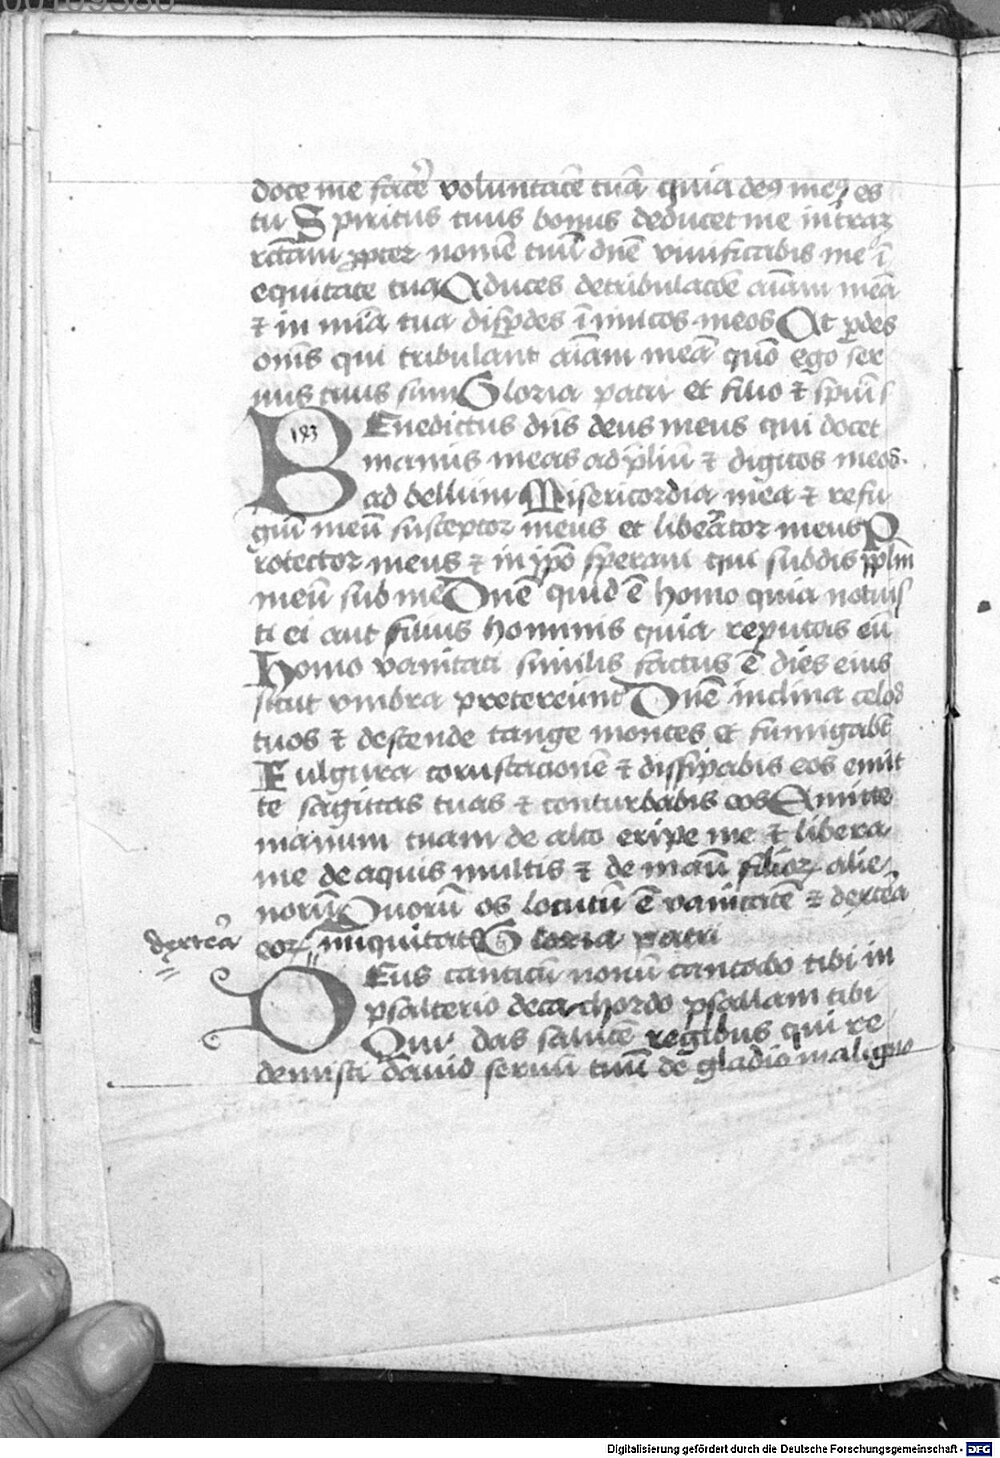 00109380
doce me facẽ voluntatẽ tuã quia deꝰ meꝰ es
tu Spiritus tuus bonus deducet me in traꝫ
rc̃tam ꝓpter nomẽ tuũ dñe viuificabis me ĩ
equitate tua Aduces de tribulac̃oẽ aĩam meã
⁊ in mĩa tua disꝑdes ĩimicos meos At ꝑdes
om̃s qui tribulant aĩam meã quõ ego ser
uus tuus sum Gloria patri et filio ⁊ sp̃ui s
193
BEnedictus dñs deus meus qui docet
manus meas ad p̃liũ ⁊ digitos meos.
ad bellum Misericordia mea ⁊ refu
giũ meũ susceptor meus et liberator meus P
rotector meus ⁊ in ip̃o speraui qui subdis pplm̃
meũ sub me Dñe quid ẽ homo quia notuis
ti ei aut filius hominis quia reputas eũ
Homo vanitati similis factus ẽ dies eius
sicut vmbra pretereũnt Dñe inclina celos
tuos ⁊ descende tange montes et fumigabt̃
Fulgura coruscacionẽ ⁊ dissipabis eos emit
te sagittas tuas ⁊ conturbabis eos Emitte
manum tuam de alto eripe me ⁊ libera
me de aquis multis ⁊ de manũ filioꝝ alie
norũ Quorũ os locutũ ẽ vanitatẽ ⁊ dextẽa
dextẽa
eoꝝ iniquitat̃ Gloria patri
DEus canticũ nouũ cantabo tibi in
psalterio deca chordo psallam tibi
Qui das salutẽ regibus qui re
demisti dauid seruũ tuũ de gladio maligno
Digitalisierung gefördert durch die Deutsche Forschungsgemeinschaft - DFG